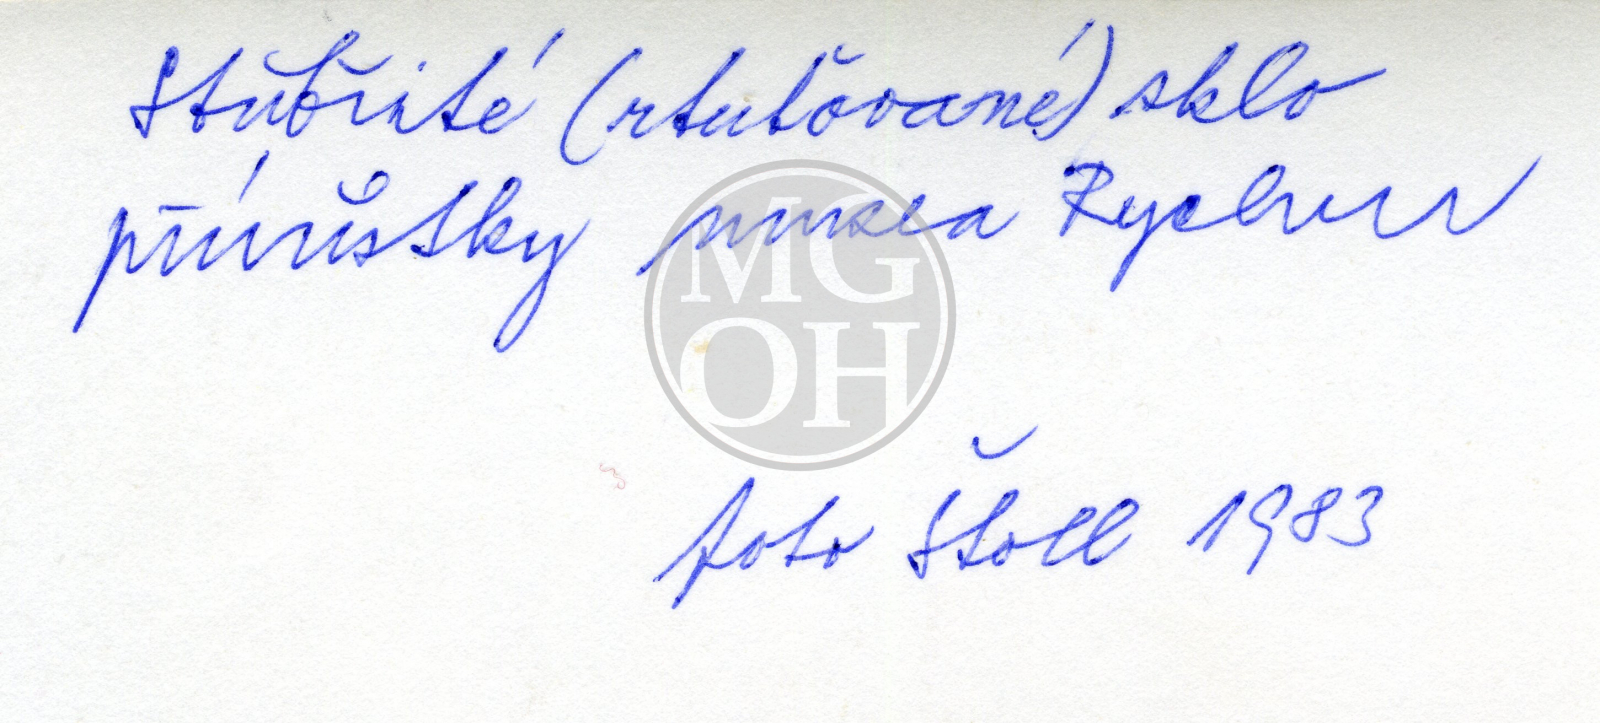 Stříbřité (rtuťované) sklo
přírůstky musea Rychnov
MG
OH
foto Štoll 1983